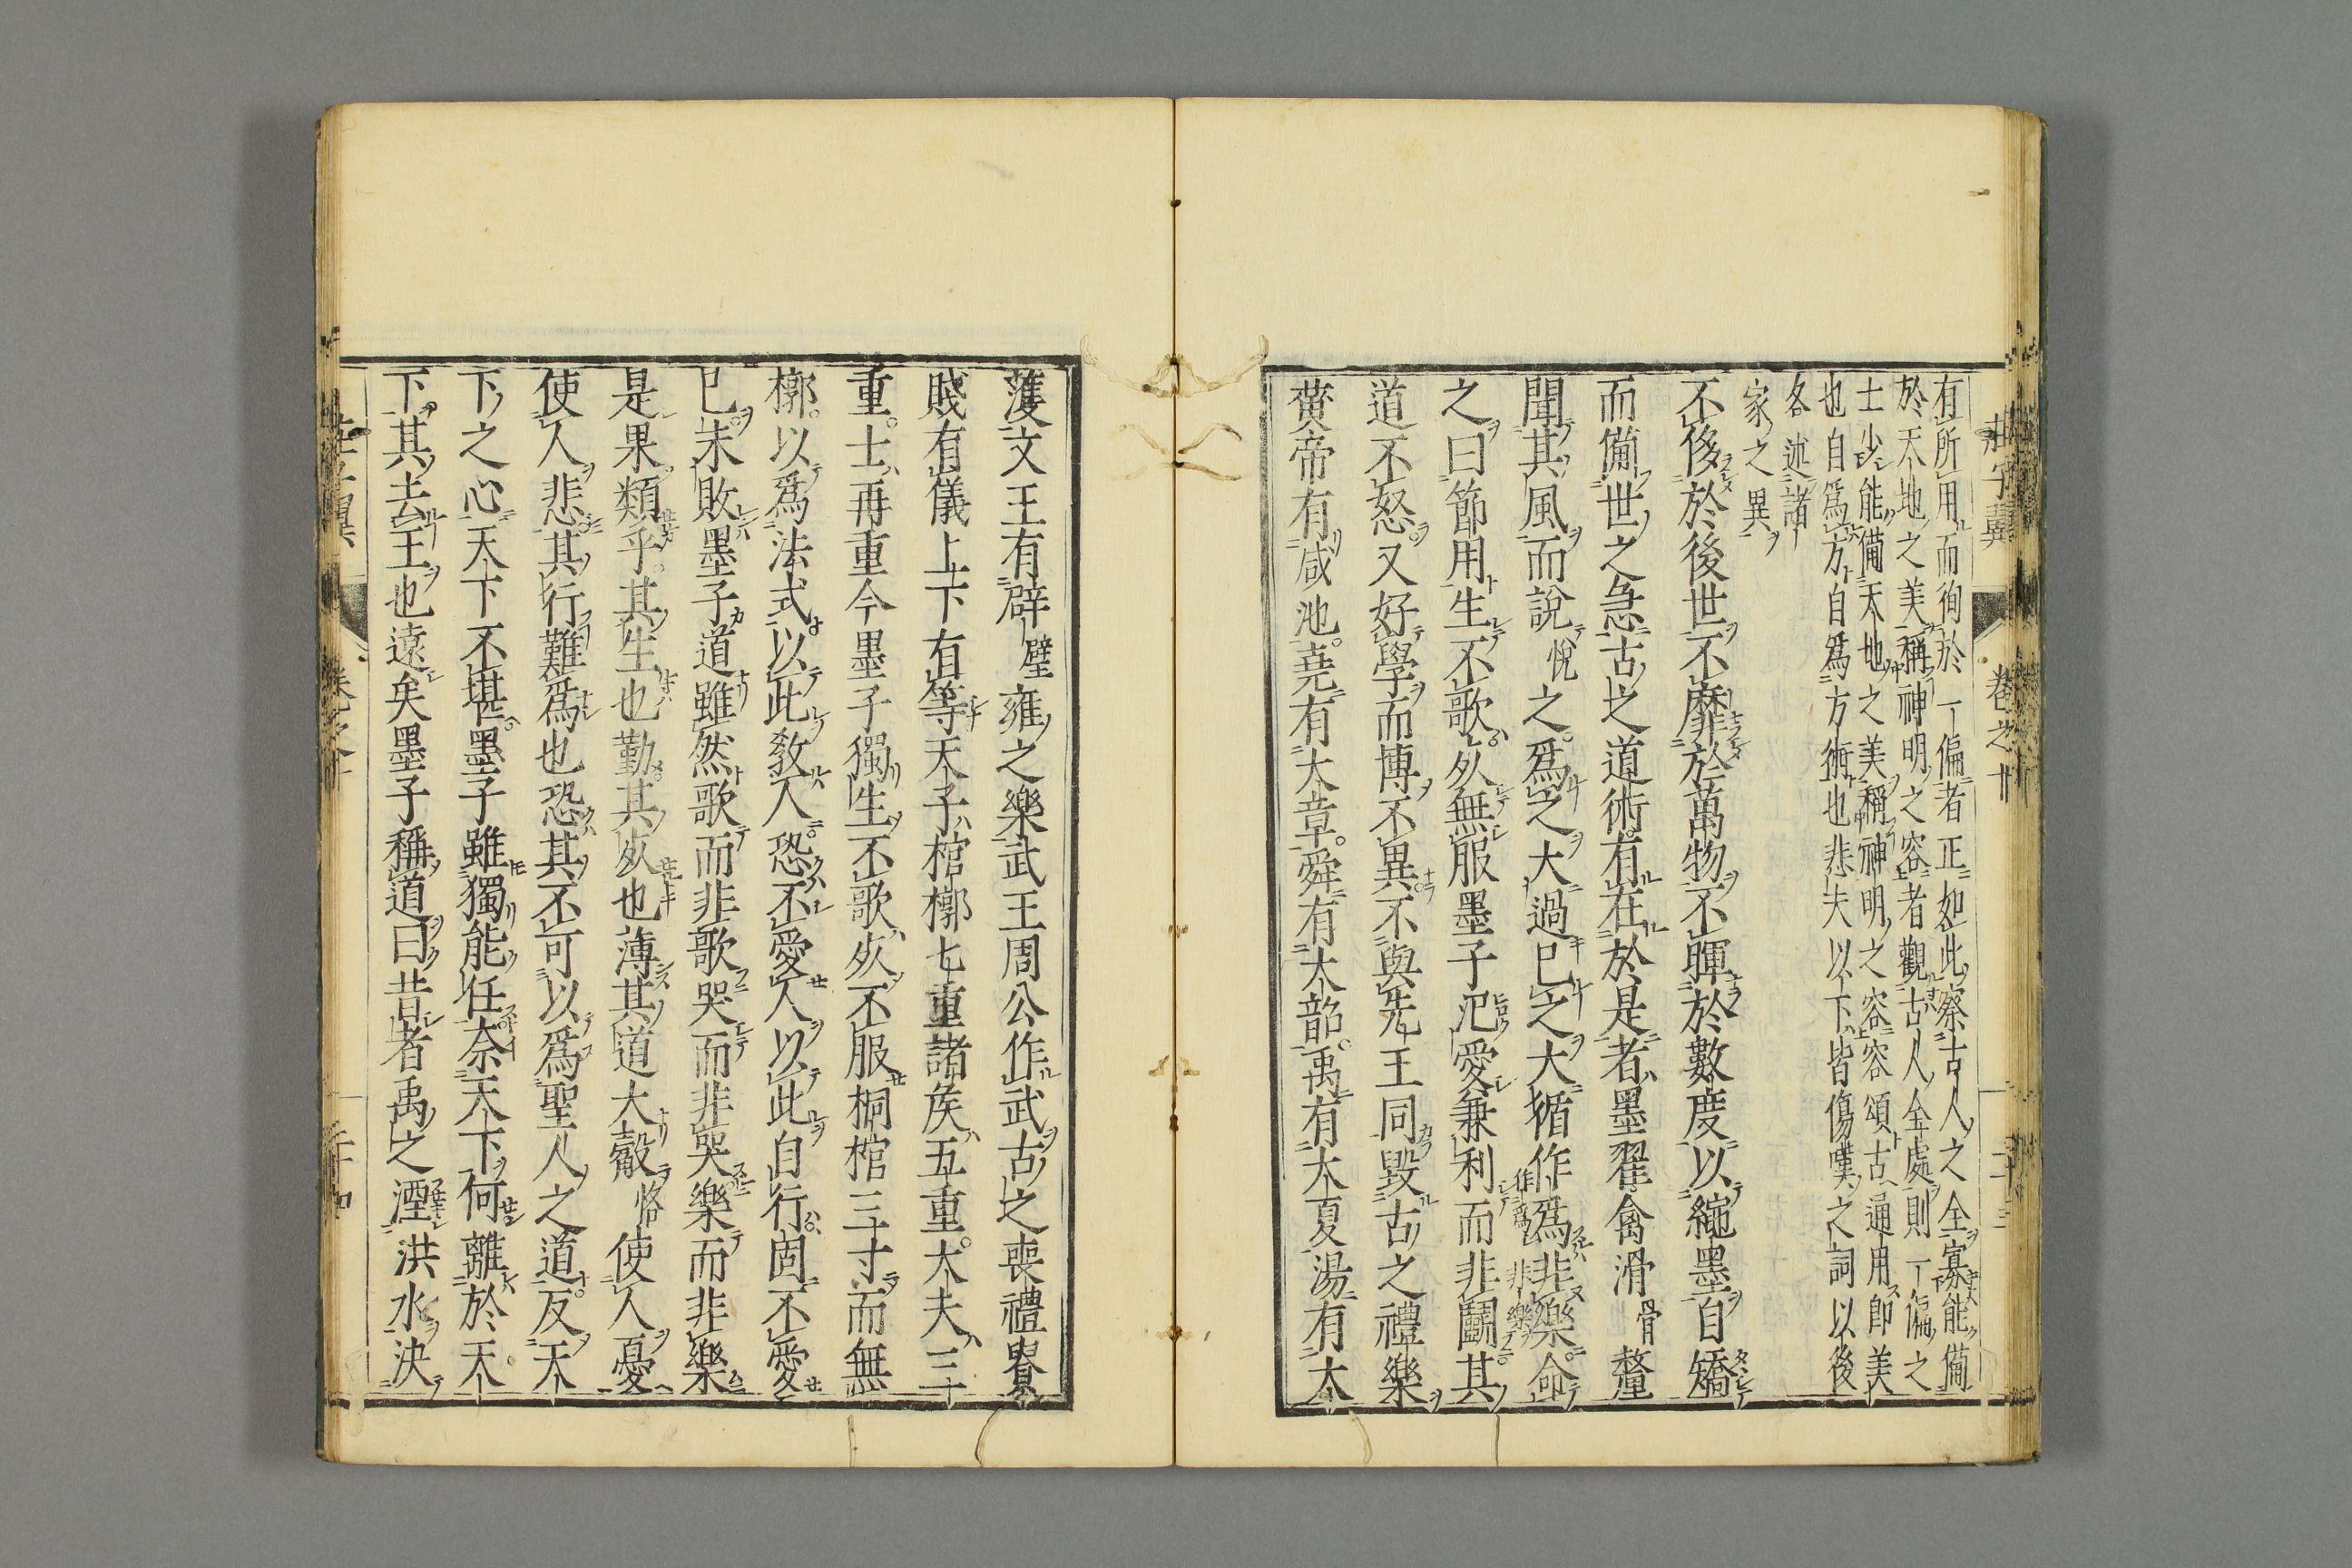 莊子翼 卷之十 二十三
有所用而徇於一偏者正如此察古人之全寡能備
於天地之美稱神明之容者觀古人全處則一偏之
士少能備天地之美稱神明之容容頌古通用即美
也自爲方自爲方術也悲夫以下皆傷嘆之詞以後
各述諸
家之異
不侈於後世不靡於萬物不暉於數度以繩墨自矯
而備世之急古之道術有在於是者墨翟禽滑骨釐
聞其風而說悅之爲之大過已之大循作爲非樂命
作爲非樂
之曰節用生不歌死無服墨子氾愛兼利而非鬭其
道不怒又好學而博不異不與先王同毀古之禮樂
黃帝有咸池堯有大章舜有大韶禹有大夏湯有大
濩文王有辟璧雍之樂武王周公作武古之喪禮貴
賤有儀上下有等天子棺槨七重諸矦五重大夫三
重士再重今墨子獨生不歌死不服桐棺三寸而無
槨以爲法式以此敎人恐不愛人以此自行固不愛
已未敗墨子道雖然歌而非歌哭而非哭樂而非樂
是果類乎其生也勤其死也薄其道大觳恪使人憂
使人悲其行難爲也恐其不可以爲聖人之道反天
下之心天下不堪墨子雖獨能任奈天下何離於天
下其去王也遠矣墨子稱道曰昔者禹之湮洪水決